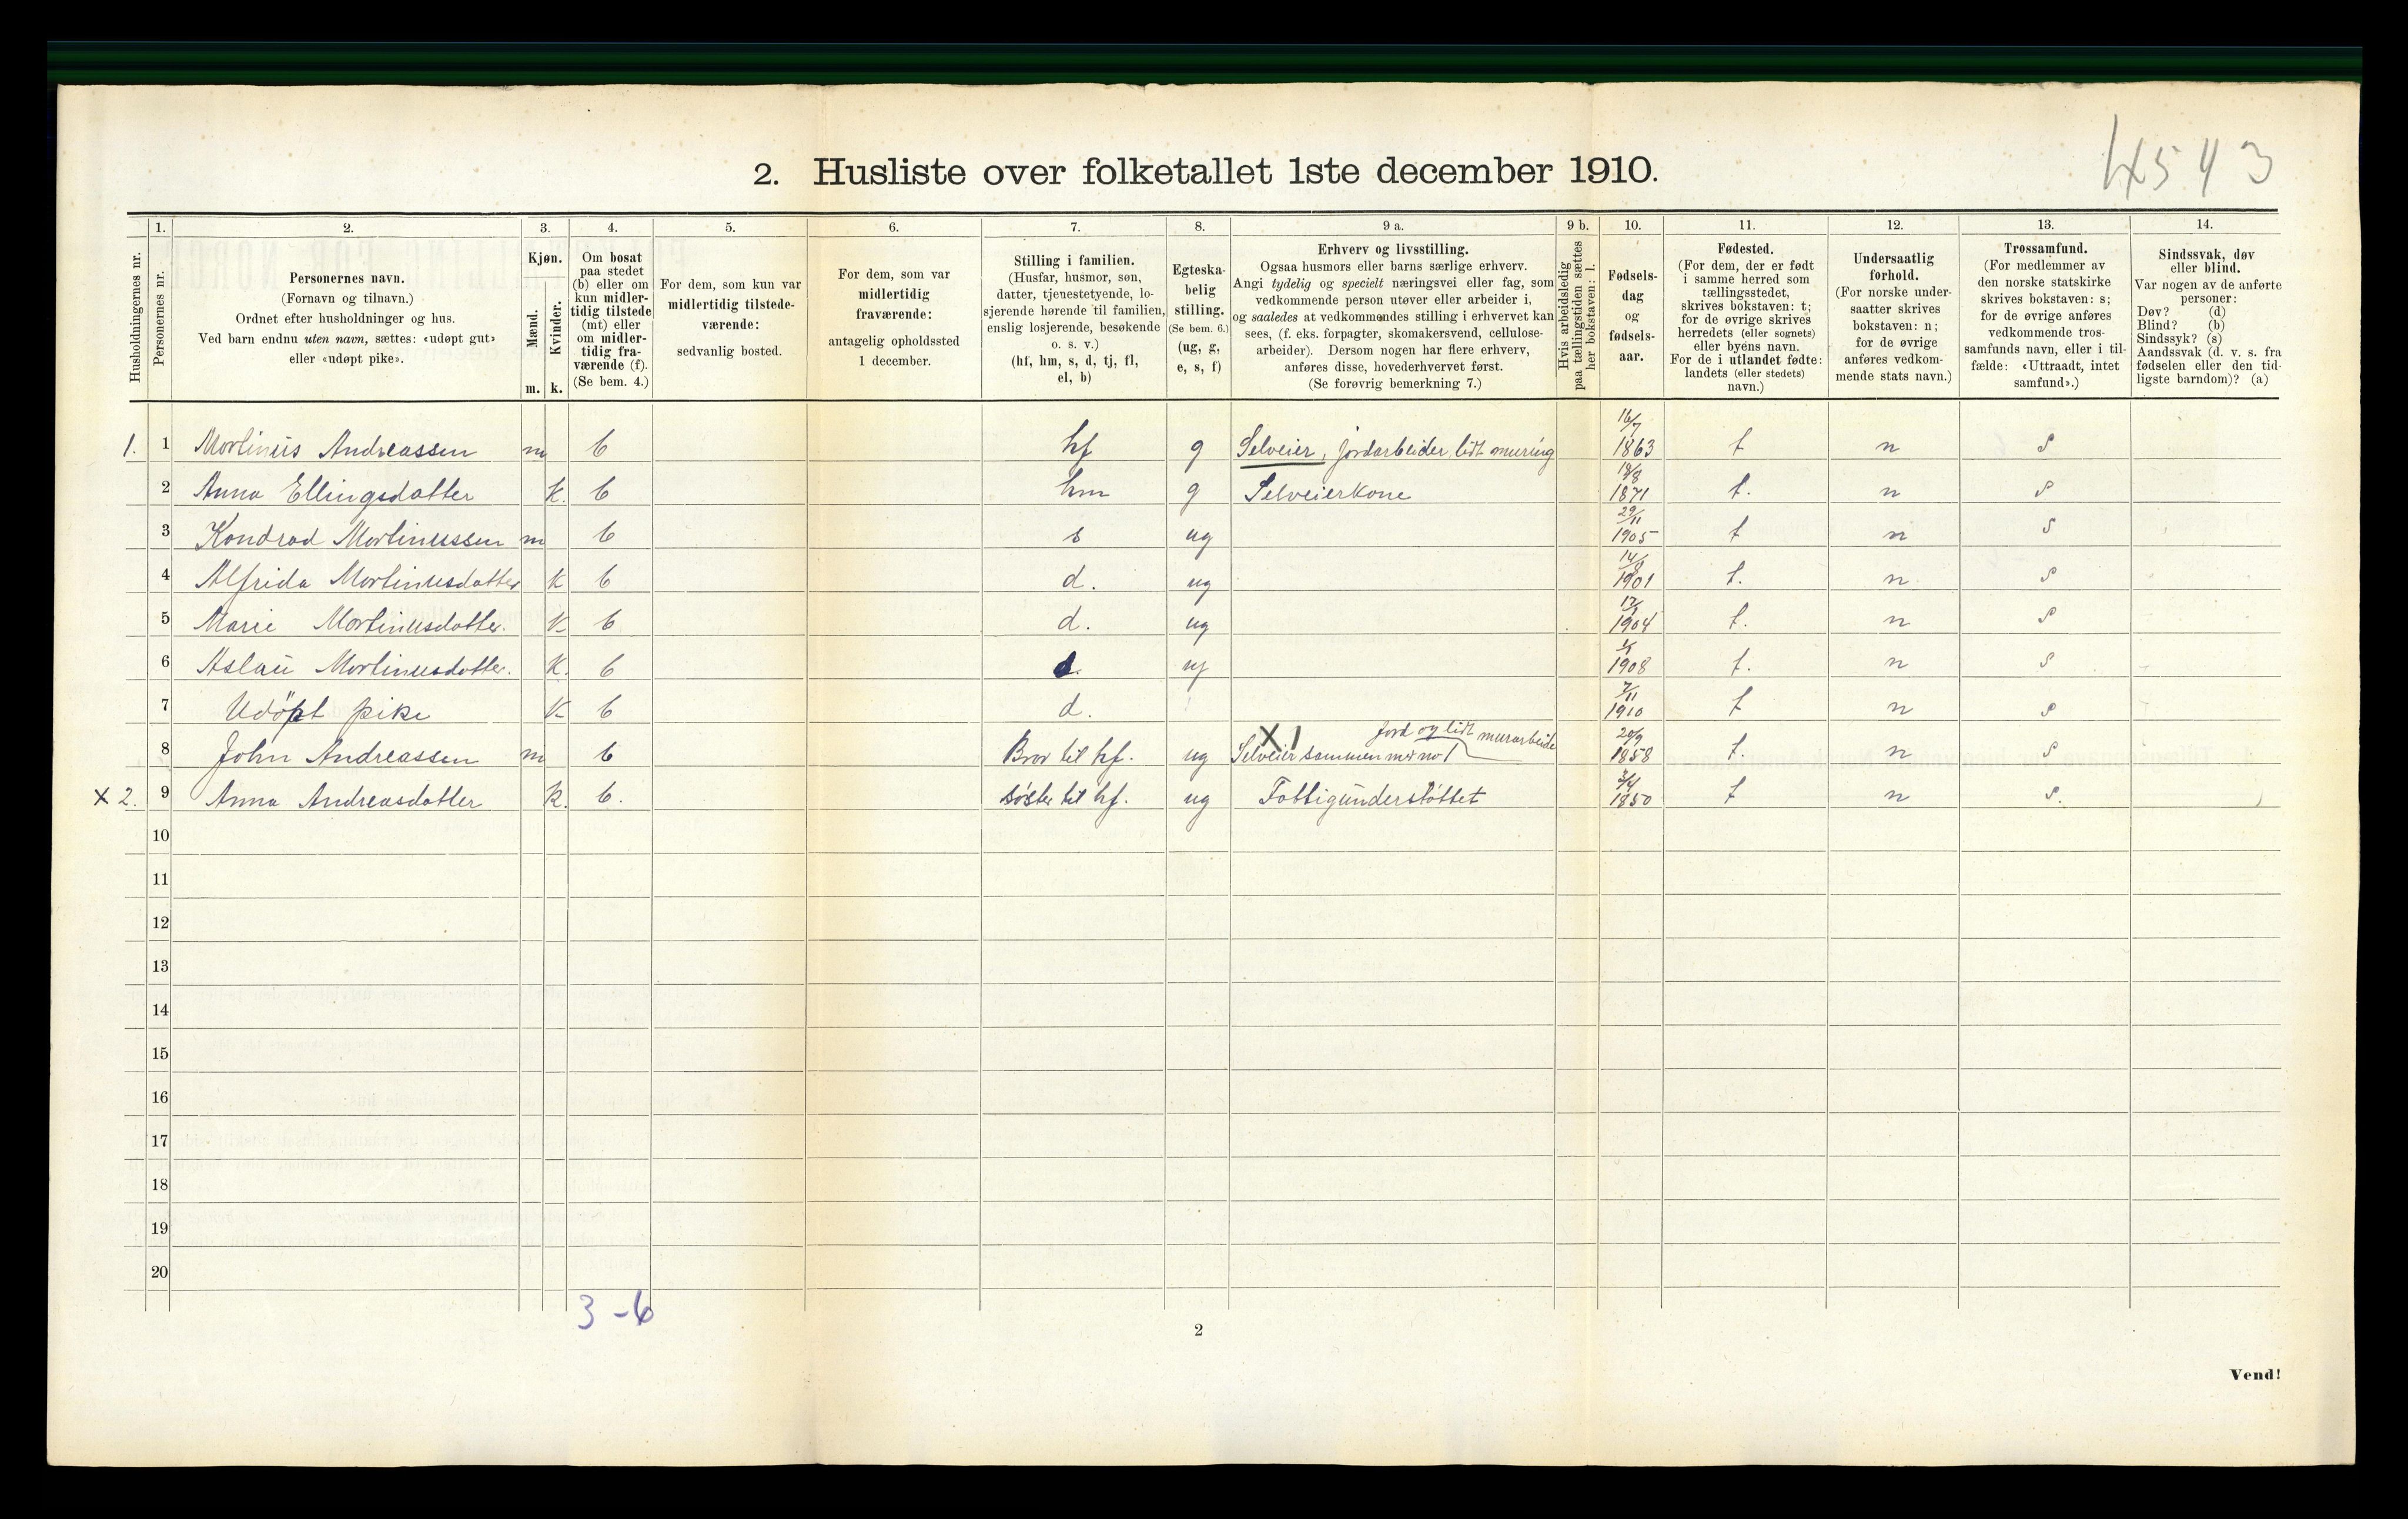 4543
2. Husliste over folketallet 1ste december 1910.
Husholdningernes nr.
1.
Personernes nr.
2.
Personernes navn.
(Fornavn og tilnavn.)
Ordnet efter husholdninger og hus.
Ved barn endnu uten navn, sættes: «udøpt gut»
eller «udøpt pike».
3.
Kjøn.
Mænd.
Kvinder.
m. k.
4.
Om bosat
paa stedet
(b) eller om
kun midler-
tidig tilstede
(mt) eller
om midler-
tidig fra-
værende (f).
(Se bem. 4.)
5.
For dem, som kun var
midlertidig tilstede-
værende:
sedvanlig bosted.
6.
For dem, som var
midlertidig
fraværende:
antagelig opholdssted
1 december.
7.
Stilling i familien.
(Husfar, husmor, søn,
datter, tjenestetyende, lo-
sjerende hørende til familien,
enslig losjerende, besøkende
o. s. v.)
(hf, hm, s, d, tj, fl,
el, b)
8.
Egteska-
belig
stilling.
(Se bem. 6.)
(ug, g,
e, s, f)
9 a.
Erhverv og livsstilling.
Ogsaa husmors eller barns særlige erhverv.
Angi tydelig og specielt næringsvei eller fag, som
vedkommende person utøver eller arbeider i,
og saaledes at vedkommendes stilling i erhvervet kan
sees, (f. eks. forpagter, skomakersvend, cellulose-
arbeider). Dersom nogen har flere erhverv,
anføres disse, hovederhvervet først.
(Se forøvrig bemerkning 7.)
9 b.
Hvis arbeidsledig
paa tællingstiden sættes
her bokstaven: l.
10.
Fødsels-
dag
og
fødsels-
aar.
11.
Fødested.
(For dem, der er født
i samme herred som
tællingsstedet,
skrives bokstaven: t;
for de øvrige skrives
herredets (eller sognets)
eller byens navn.
For de i utlandet fødte:
landets (eller stedets)
navn.)
12.
Undersaatlig
forhold.
(For norske under-
saatter skrives
bokstaven: n;
for de øvrige
anføres vedkom-
mende stats navn.)
13.
Trossamfund.
(For medlemmer av
den norske statskirke
skrives bokstaven: s;
for de øvrige anføres
vedkommende tros-
samfunds navn, eller i til-
fælde: «Uttraadt, intet
samfund».)
14.
Sindssvak, døv
eller blind.
Var nogen av de anførte
personer:
Døv? (d)
Blind? (b)
Sindssyk? (s)
Aandssvak (d. v. s. fra
fødselen eller den tid-
ligste barndom)? (a)
1. 1 Mortinus Andreassen m b hf g Selveier, jordarbeider, lidt muring 16/7 1863 t n s
2 Anna Ellingsdatter k. b hm g Selveierkone 18/8 1871 t. n s
3 Kondrad Mortinussen m b s ug 29/11 1905 t n s
4 Alfrida Mortinusdatter k b d. ug 14/8 1901 t. n s
5 Marie Mortinusdatter. k b d. ug 1904 t. n s
6 Aslau Mortinusdatter. k. b d. ug 1908 t. n s
7 Udöpt pike k b d. 7/11 1910 t n s
8 John Andreassen m b Bror til hf. ug X 1 Selveier sammen m. no 1 jord og lidt murarbeide 20/9 1858 t. n s
X 2. 9 Anna Andreasdatter k. b. söster til hf. ug Fattigunderstöttet 3/4 1850 t n s.
10
11
12
13
14
15
16
17
18
19
20
3 - 6
2
Vend!